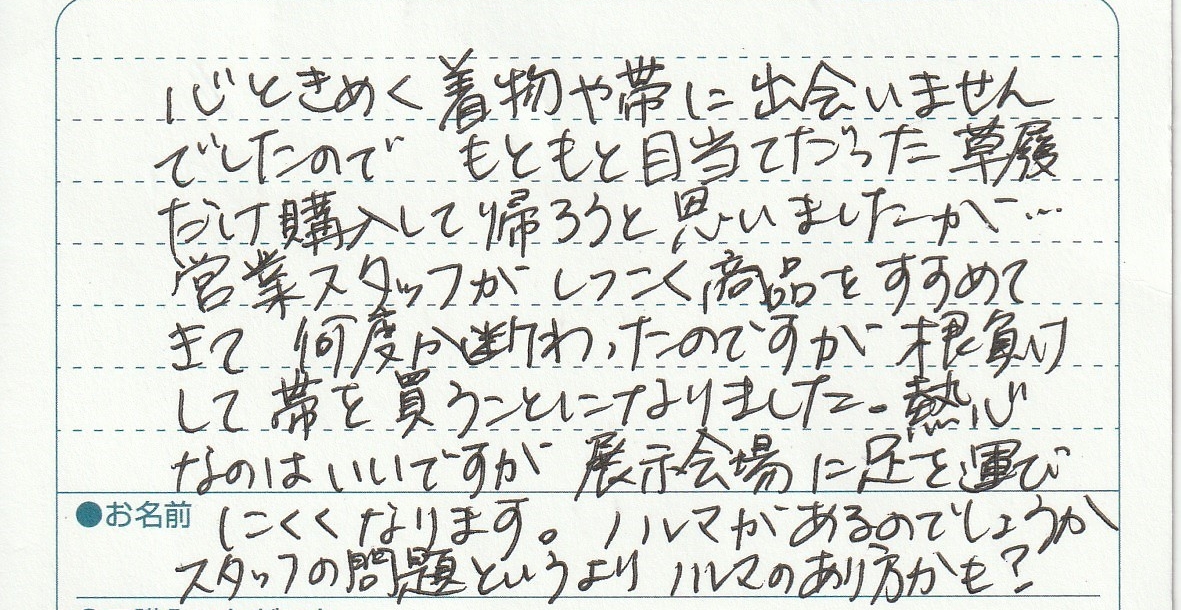 心ときめく着物や帯に出会いません
でしたので もともと目当てだった草履
だけ購入して帰ろうと思いましたが…
営業スタッフが しつこく商品をすすめて
きて 何度か断わったのですが 根負け
して 帯を買うことになりました。熱心
なのはいいですが 展示会場に足を運び
●お名前 にくくなります。ノルマがあるのでしょうか
スタッフの問題というより ノルマのあり方かも?